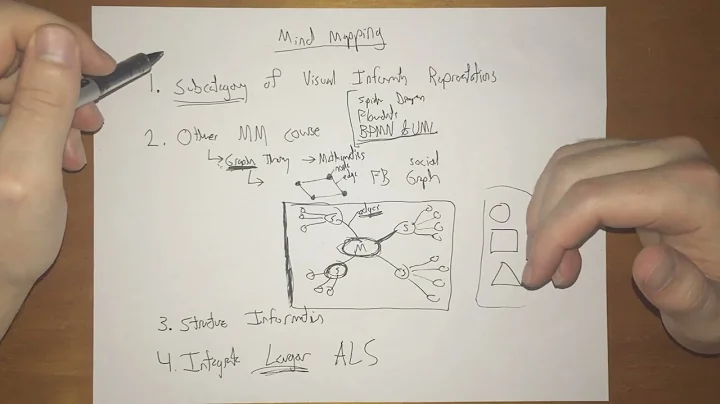 Mind Mapping
1. Subcategory of Visual Inform Representations
Spider Diagram
Flowcharts
BPMN & UML
2. Other MM course
Graph Theory → Mathematics
node
edge
FB social Graph
edges
S
S
M
S
3. Structure Information
4. Integrate Larger ALS